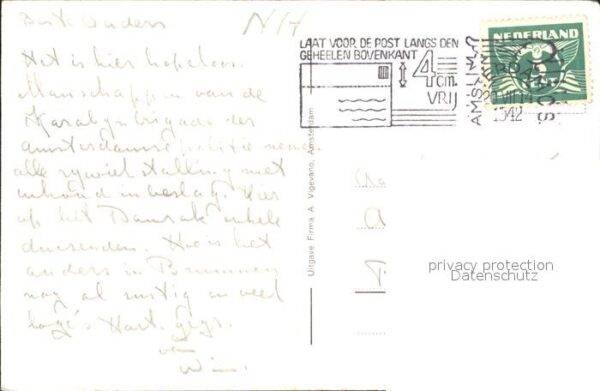 Beste Ouders
N.H
Het is hier hopeloos.
Manschappen van de
Karabijnbrigade der
Amsterdamse politie nemen
alle rijwielstalling met
inhoud in beslag. Hier
op het Damrak enkele
duizenden. Hoe is het
anders in Brummen
nog al rustig en veel
logé's Hart. gegr.
van
Wim.
LAAT VOOR DE POST LANGS DEN
GEHEELEN BOVENKANT
4 cm.
VRIJ
AMSTERDAM
1942
NEDERLAND
Uitgave Firma A. Vigevano, Amsterdam
Aa
A
privacy protection
Datenschutz